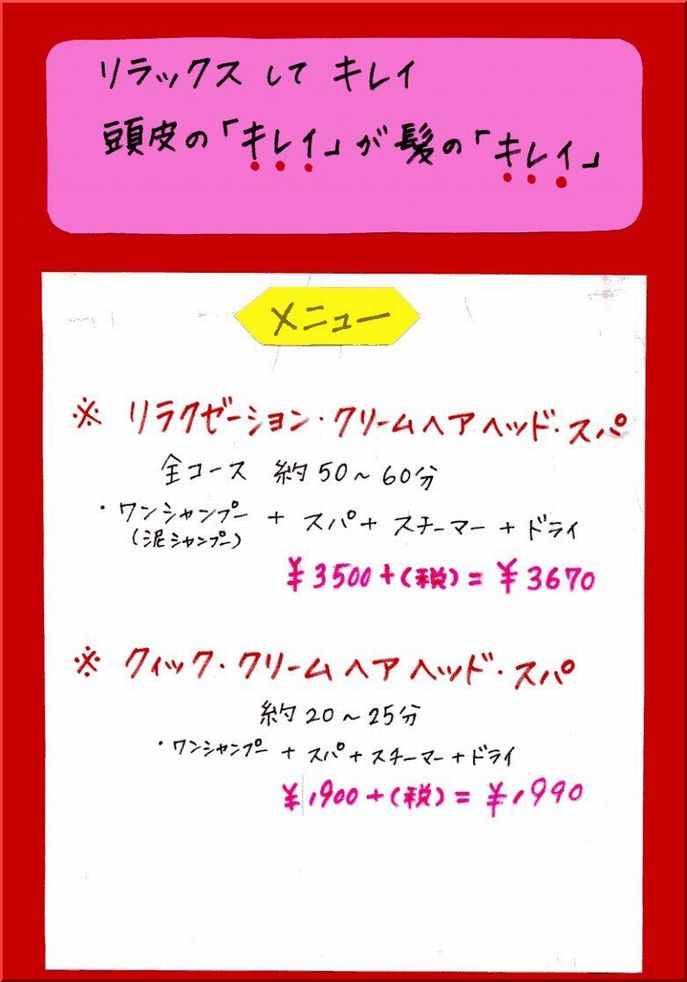 リラックス して キレイ
頭皮の「キレイ」が髪の「キレイ」
メニュー
※ リラクゼーション・クリームヘアヘッド・スパ
全コース 約50～60分
・ワンシャンプー + スパ + スチーマー + ドライ
(泥シャンプー)
¥3500+(税)=¥3670
※ クイック・クリームヘアヘッド・スパ
約20～25分
・ワンシャンプー + スパ + スチーマー + ドライ
¥1900+(税)=¥1990